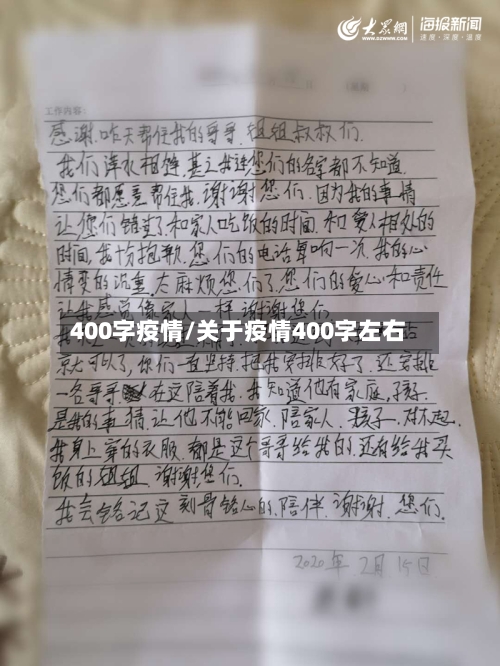 大众网
WWW.DZWWW.COM
海报新闻
速度·深度·温度
工作内容:
感谢昨天帮住我的哥哥.姐姐叔叔们.
我们萍水相锺.甚之我连您们的名字都不知道.
您们都愿意帮住我.谢谢您们.因为我的事情
让您们错过了和家人吃饭的时间.和爱人相处的
时间.我十分抱歉.您们的电话每响一次.我的心
情变的沉重.太麻烦您们了.您们的爱心和责任
让我感觉像家人一样.谢谢您们.
400字疫情/关于疫情400字左右
就可以了,你们一直坚持.把我安排好了.还安排
一名哥哥在这陪着我.我知道他有家庭,孩子.
是我的事情.让他不能回家.陪家人.孩子.对不起.
我身上穿的衣服.都是这个哥哥给我的.还有给我买
饭的姐姐.谢谢您们.
我会铭记这刻骨铭心的.陪伴.谢谢.您们.
2020年2月15日